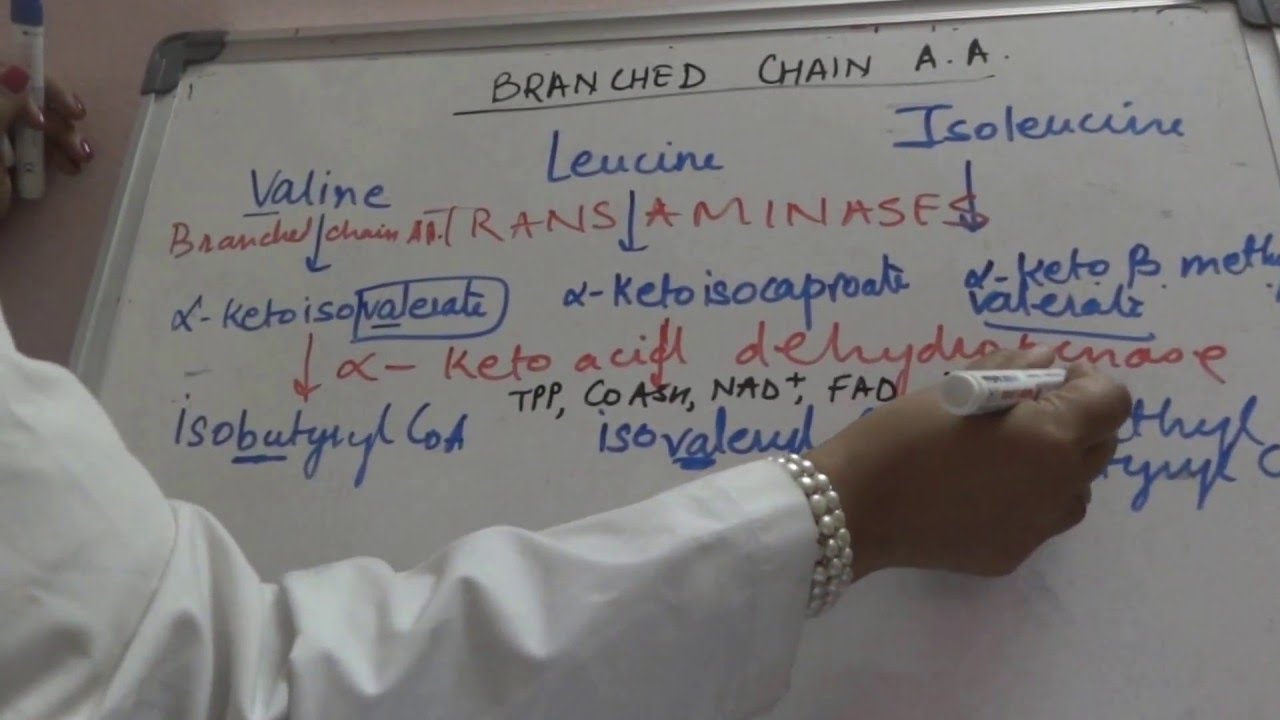 BRANCHED CHAIN A.A.
Valine Leucine Isoleucine
Branched chain AA. TRANSAMINASES
α-Ketoisovalerate α-Ketoisocaproate α-Keto β methy
valerate
α-Keto acid dehydrogenase
TPP, CoASH, NAD+, FAD
isobutyryl CoA isovaleryl thyl
tyryl C